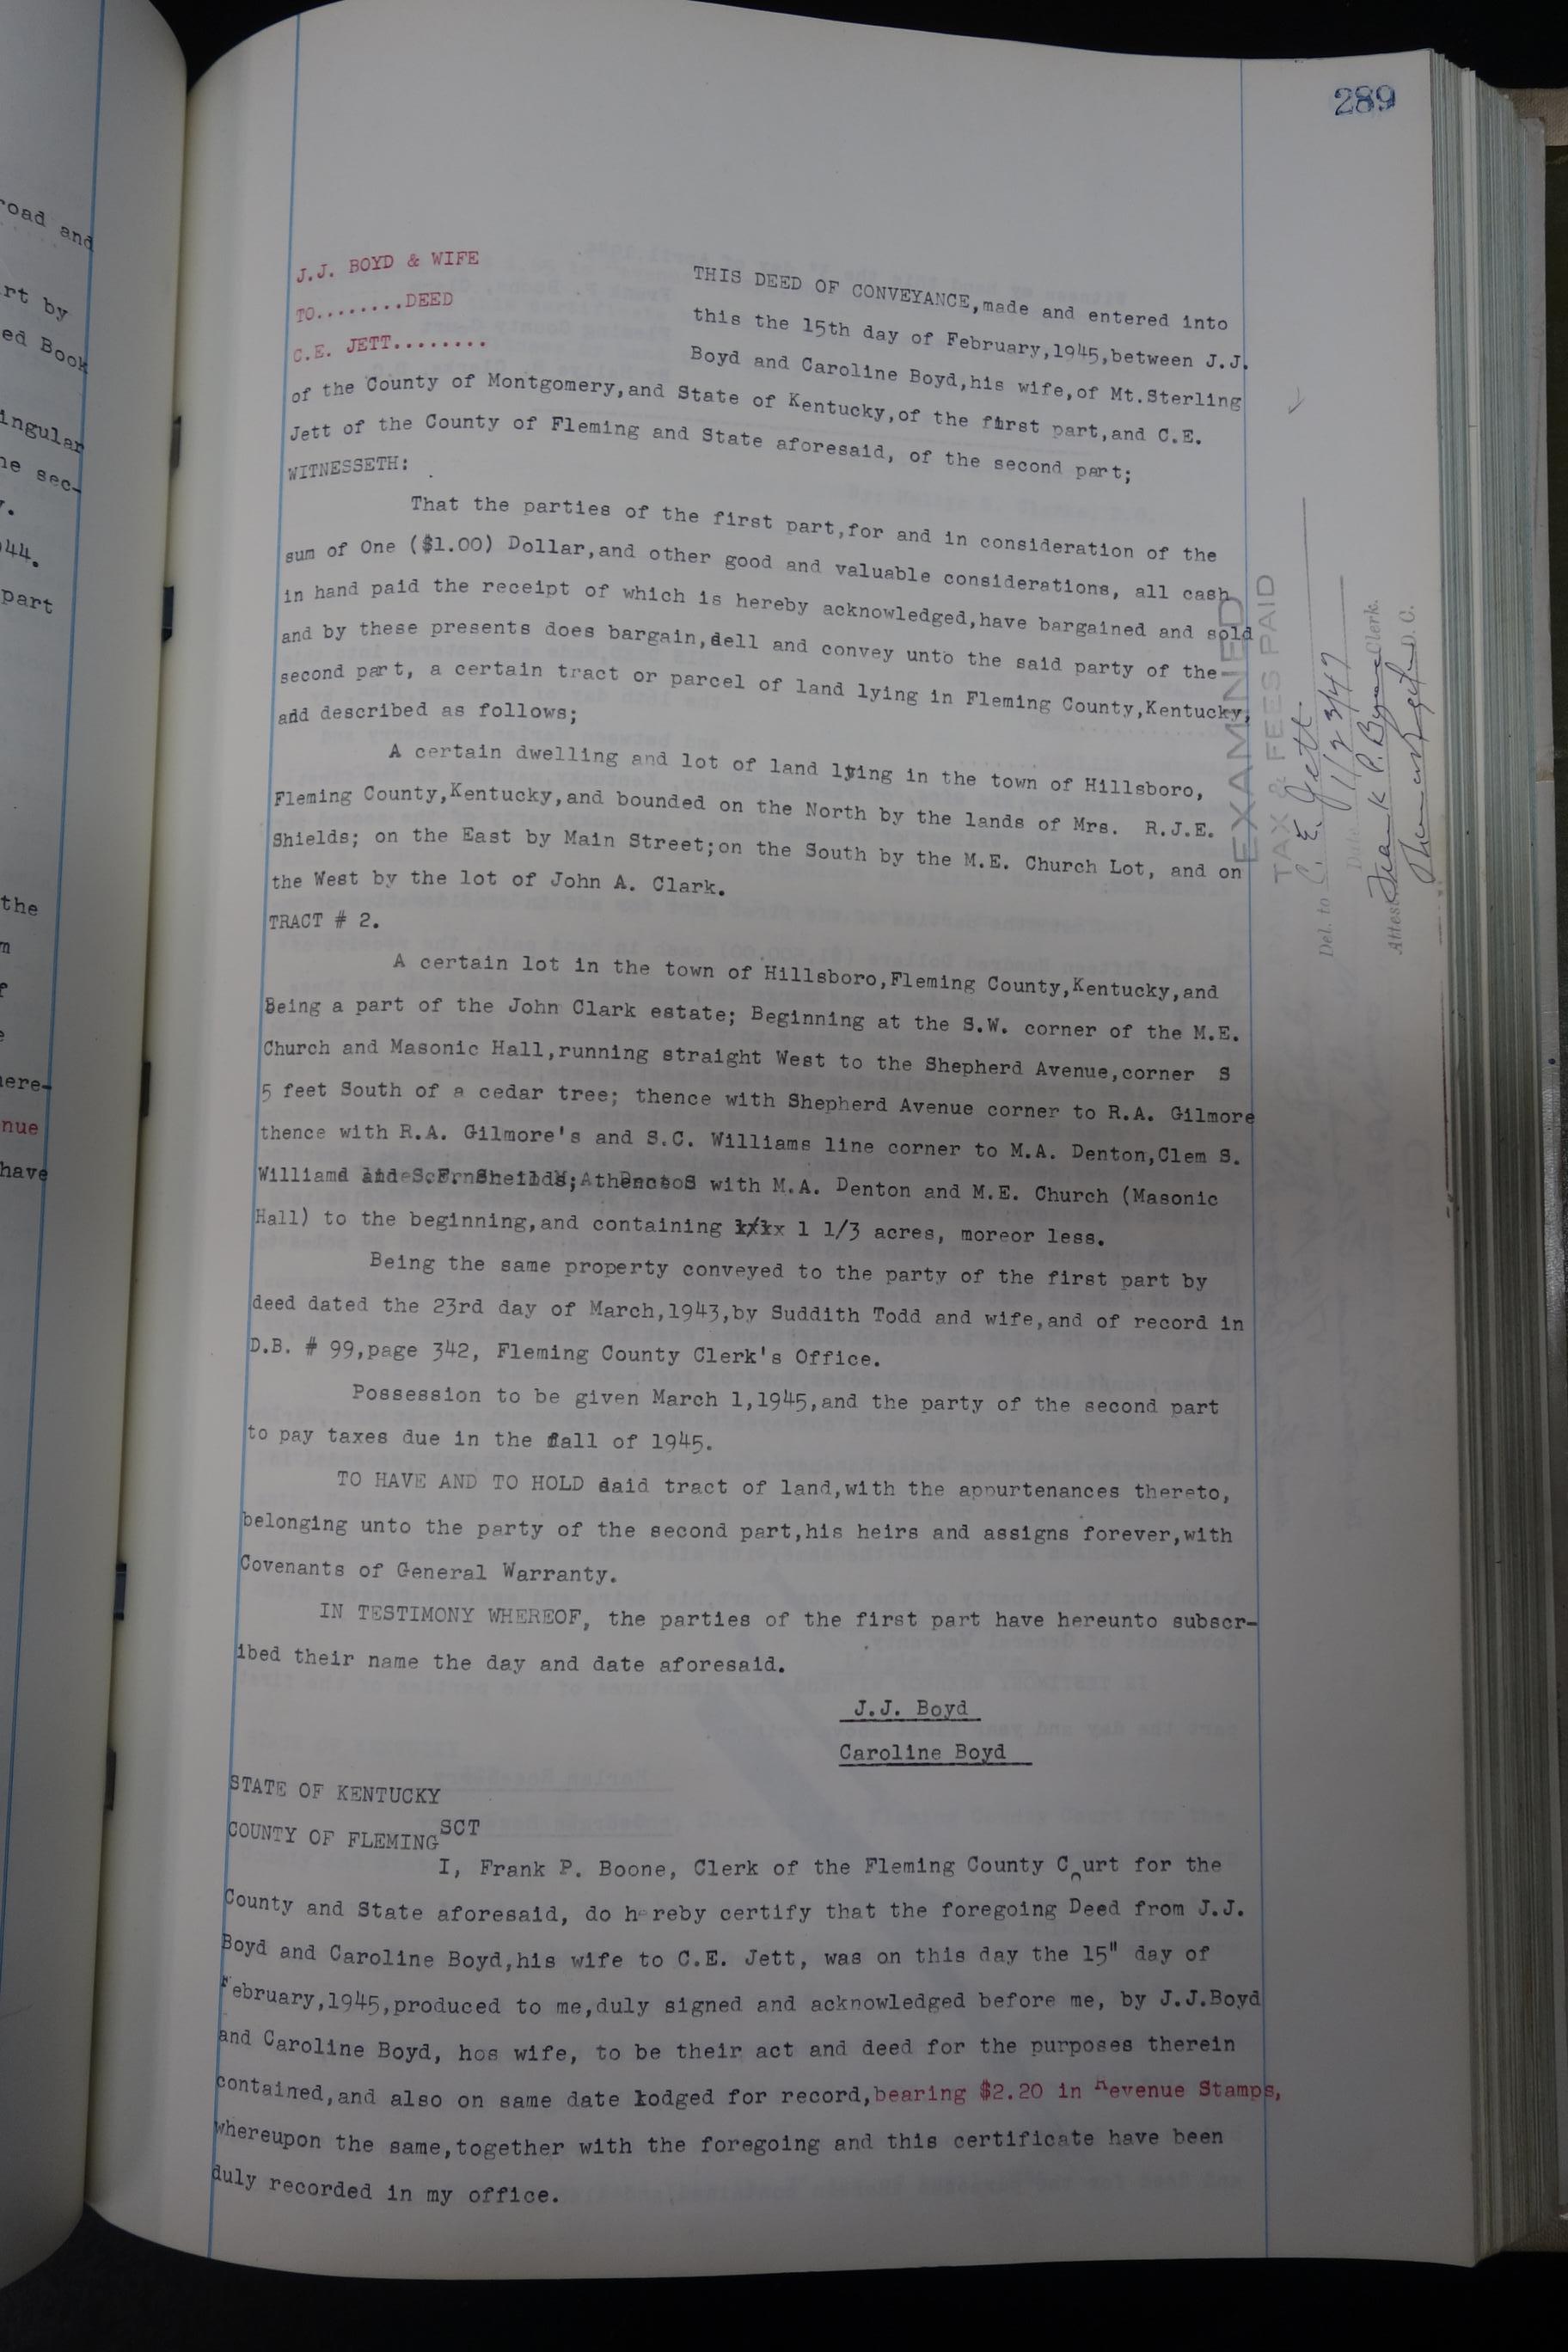 289
J.J. BOYD & WIFE
TO........DEED
C.E. JETT........
THIS DEED OF CONVEYANCE,made and entered into
this the 15th day of February,1945,between J.J.
Boyd and Caroline Boyd,his wife,of Mt.Sterling
of the County of Montgomery,and State of Kentucky,of the first part,and C.E.
Jett of the County of Fleming and State aforesaid, of the second part;
WITNESSETH:
That the parties of the first part,for and in consideration of the
sum of One ($1.00) Dollar,and other good and valuable considerations, all cash
in hand paid the receipt of which is hereby acknowledged,have bargained and sold
and by these presents does bargain,sell and convey unto the said party of the
second part, a certain tract or parcel of land lying in Fleming County,Kentucky,
and described as follows;
A certain dwelling and lot of land lying in the town of Hillsboro,
Fleming County,Kentucky,and bounded on the North by the lands of Mrs. R.J.E.
Shields; on the East by Main Street;on the South by the M.E. Church Lot, and on
the West by the lot of John A. Clark.
TRACT # 2.
A certain lot in the town of Hillsboro,Fleming County,Kentucky,and
Being a part of the John Clark estate; Beginning at the S.W. corner of the M.E.
Church and Masonic Hall,running straight West to the Shepherd Avenue,corner S
5 feet South of a cedar tree; thence with Shepherd Avenue corner to R.A. Gilmore
thence with R.A. Gilmore's and S.C. Williams line corner to M.A. Denton,Clem S.
Williams with M.A. Denton and M.E. Church (Masonic
Hall) to the beginning,and containing 1 1/3 acres, moreor less.
Being the same property conveyed to the party of the first part by
deed dated the 23rd day of March,1943,by Suddith Todd and wife,and of record in
D.B. # 99,page 342, Fleming County Clerk's Office.
Possession to be given March 1,1945,and the party of the second part
to pay taxes due in the fall of 1945.
TO HAVE AND TO HOLD said tract of land,with the appurtenances thereto,
belonging unto the party of the second part,his heirs and assigns forever,with
Covenants of General Warranty.
IN TESTIMONY WHEREOF, the parties of the first part have hereunto subscr-
ibed their name the day and date aforesaid.
J.J. Boyd
Caroline Boyd
STATE OF KENTUCKY
SCT
COUNTY OF FLEMING
I, Frank P. Boone, Clerk of the Fleming County Curt for the
County and State aforesaid, do hereby certify that the foregoing Deed from J.J.
Boyd and Caroline Boyd,his wife to C.E. Jett, was on this day the 15" day of
February,1945,produced to me,duly signed and acknowledged before me, by J.J.Boyd
and Caroline Boyd, hos wife, to be their act and deed for the purposes therein
contained,and also on same date lodged for record,bearing $2.20 in Revenue Stamps,
whereupon the same,together with the foregoing and this certificate have been
duly recorded in my office.
EXAMINED
TAX & FEES PAID
Del. to C. E. Jett
Date
Attest Frank P. Clerk.
D. C.
road and
rt by
ed Book
ingular
he sec-
44.
part
the
ere-
nue
have